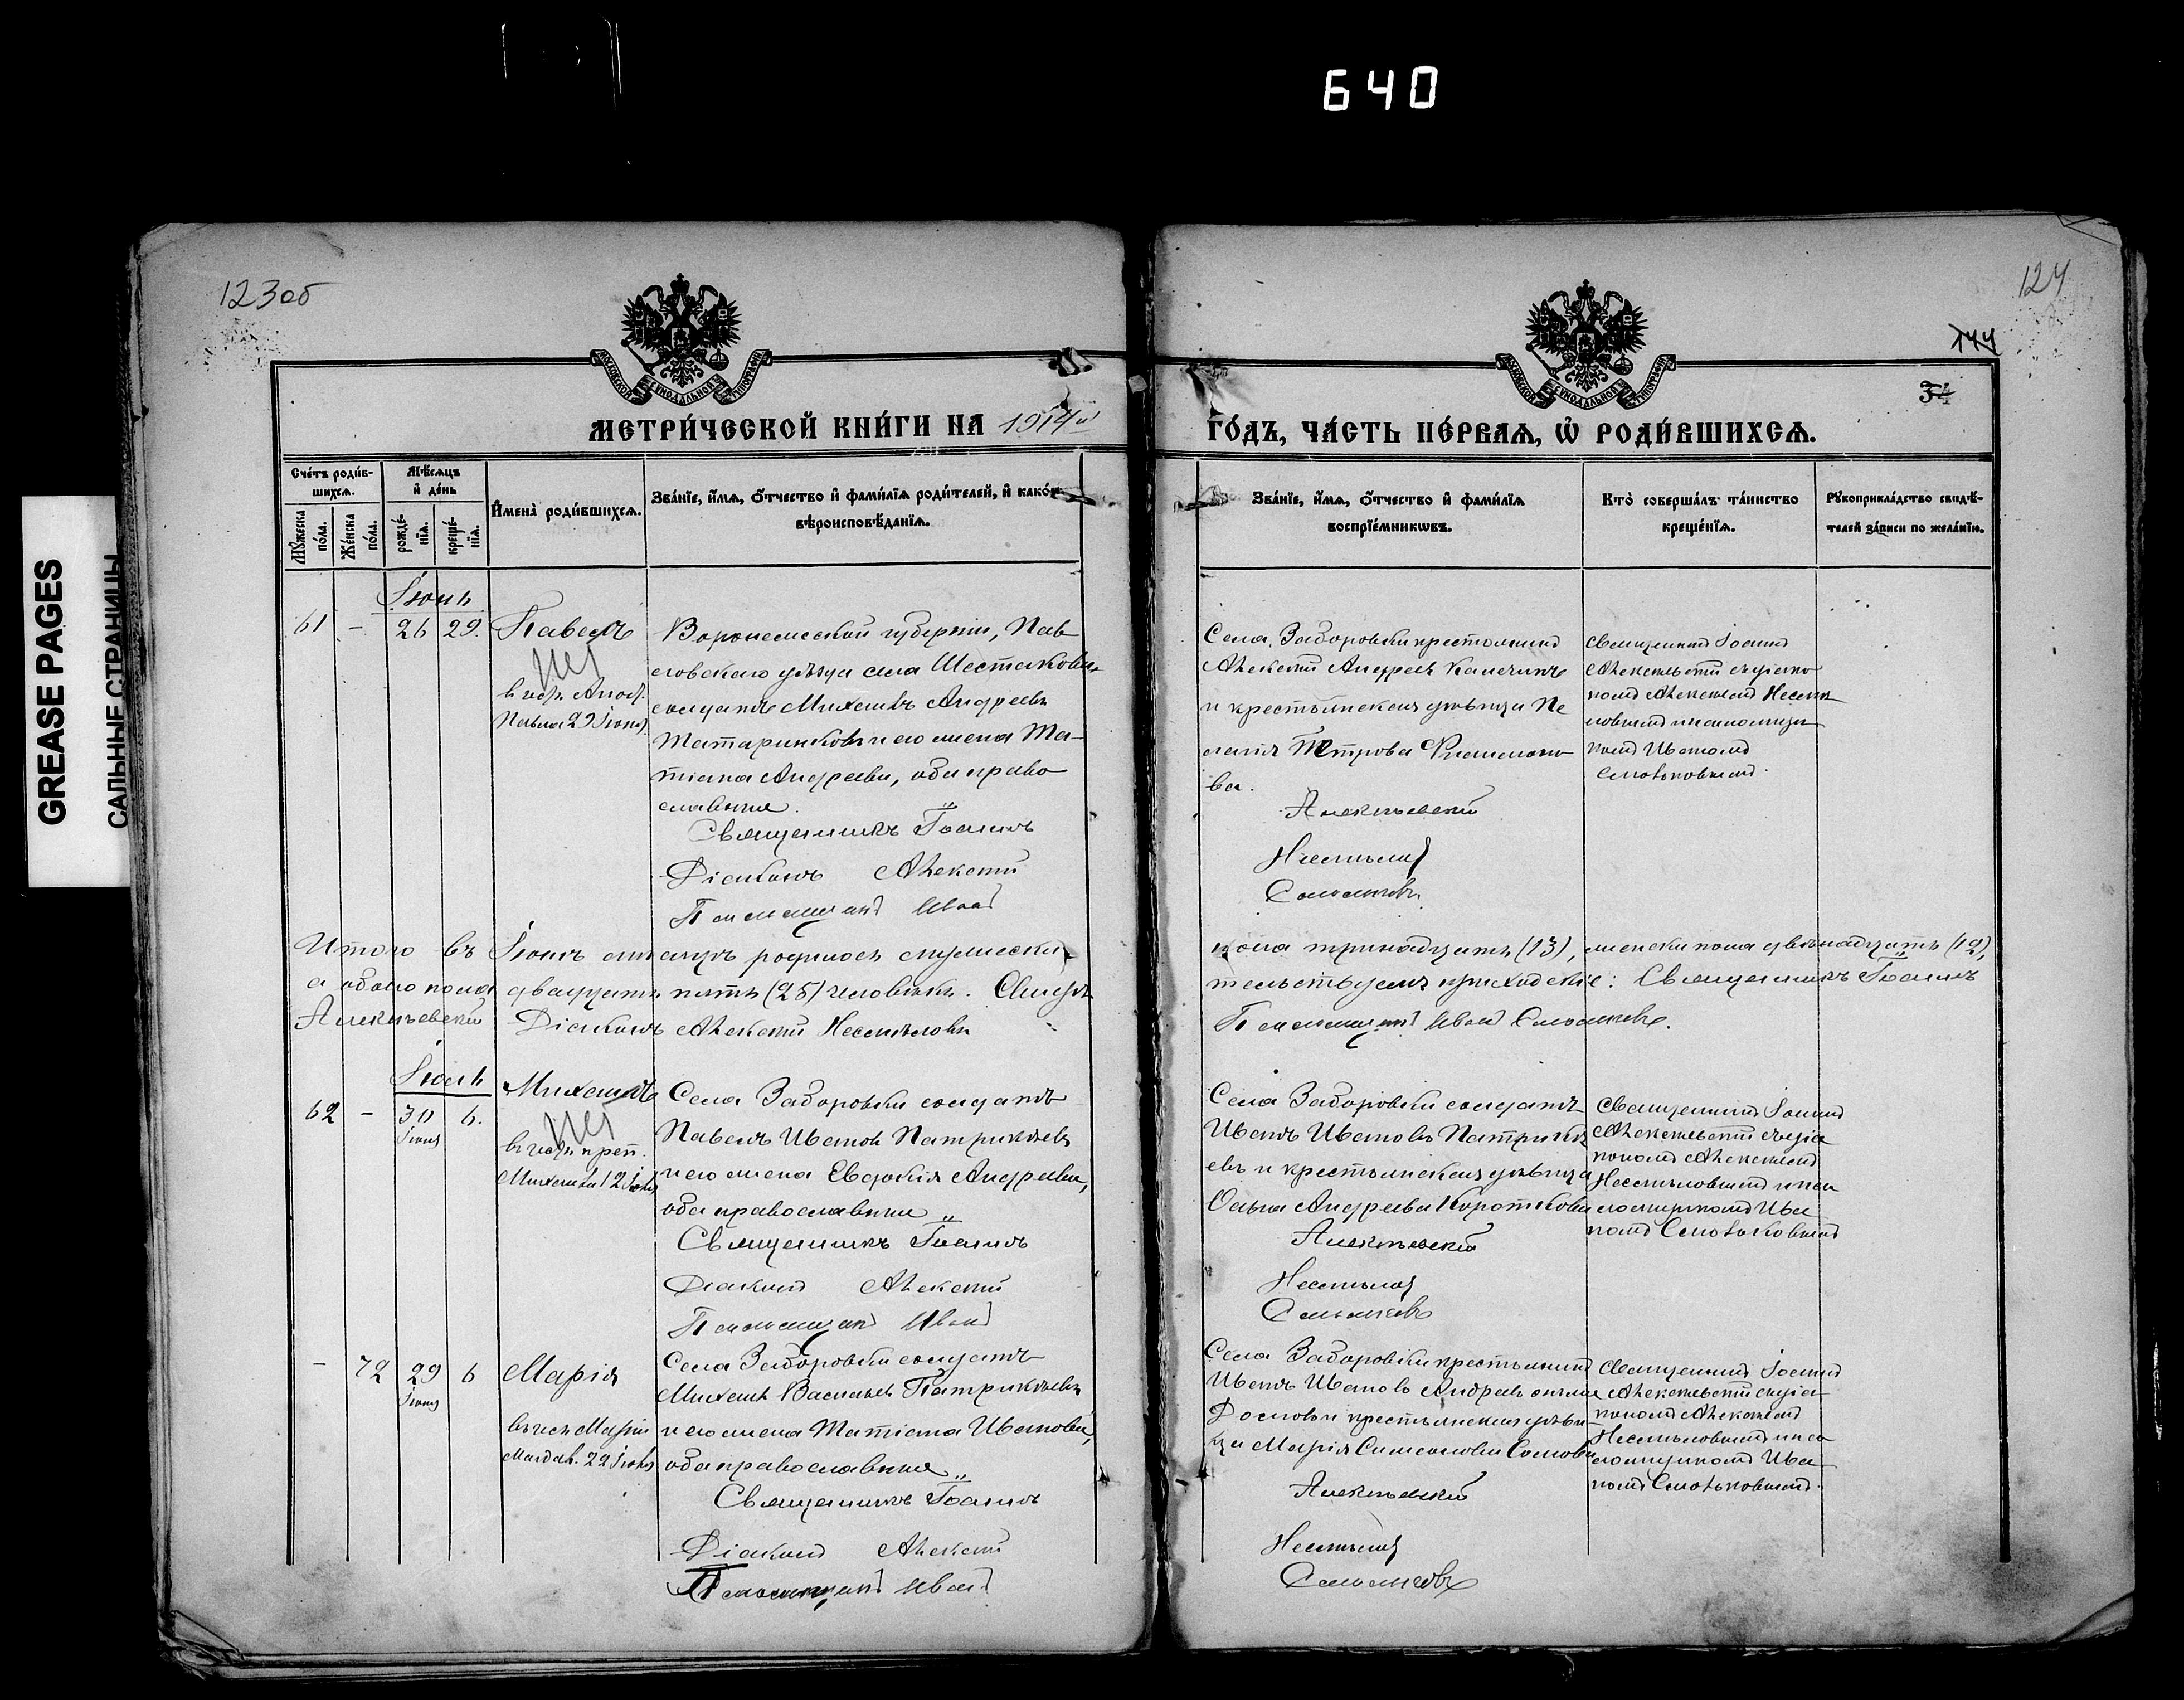 640
GREASE PAGES
САЛЬНЫЕ СТРАНИЦЫ
123об
124
144
34
МОСКОВСКОЙ СѴНОДАЛЬНОЙ ТИПОГРАФІИ
МОСКОВСКОЙ СѴНОДАЛЬНОЙ ТИПОГРАФІИ
МЕТРИ́ЧЕСКОЙ КНИ́ГИ НА 1914й
ГО́ДЪ, ЧА́СТЬ ПЕ́РВАЯ, Ѡ РОДИ́ВШИХСЯ.
Сче́тъ роди́в-
шихся.
Мѣ́сяцъ
и де́нь
Му́жеска
по́ла.
Же́нска
по́ла.
рожде́-
нія.
креще́-
нія.
Имена̀ роди́вшихся.
Зва́ніе, и́мя, о́тчество и фами́лія роди́телей, и како́го
вѣроисповѣ́данія.
Зва́ніе, и́мя, о́тчество и фами́лія
воспріе́мниковъ.
Кто̀ соверша́лъ та́инство
креще́нія.
Рукоприкла́дство свидѣ́-
телей за́писи по жела́нію.
Іюнь
61 - 26 29. Павелъ
въ честь Апост.
Павла 29 Іюня
Воронежской губерніи, Пав
ловскаго уѣзда села Шестакова
солдатъ Михаилъ Андреевъ
Татаринковъ и его жена Та-
тіана Андреева, оба право
славные.
Священникъ Іоаннъ
Діаконъ Алексій
Псаломщикъ Иванъ
Села Заборовки крестьянинъ
Алексій Андреевъ
и крестьянская дѣвица Пе
лагія Петрова Филимоно
ва.
Алексѣевскій
Несмѣловъ
Смольковъ
священникъ Іоаннъ
Алексѣевскій съ діако
номъ Алексіемъ Несмѣ
ловымъ и псаломщи
комъ Иваномъ
Смольковымъ.
Итого въ Іюнѣ мѣсяцѣ родилось мужеска
пола тринадцать (13), женска пола двѣнадцать (12),
а обоего пола двадцать пять (25) человѣкъ. Свидѣ
тельствуемъ приходскіе: Священникъ Іоаннъ
Алексѣевскій Діаконъ Алексій Несмѣловъ
Псаломщикъ Иванъ Смольковъ.
Іюль
62 - 30 6. Михаилъ
Іюня
въ честь преп.
Михаила 12 Іюля
Села Заборовки солдатъ
Павелъ Ивановъ Патрикѣевъ
и его жена Евдокія Андреева,
оба православные
Священникъ Іоаннъ
Діаконъ Алексій
Псаломщикъ Иванъ
Села Заборовки солдатъ
Иванъ Ивановъ Патрикѣ
евъ и крестьянская дѣвица
Ольга Андреева Короткова
Алексѣевскій
Несмѣловъ
Смольковъ
Священникъ Іоаннъ
Алексѣевскій съ діа
кономъ Алексіемъ
Несмѣловымъ и пса
ломщикомъ Ива
номъ Смольковымъ
- 72 29 6 Марія
Іюня
въ честь Маріи
Магдал. 22 Іюля
Села Заборовки солдатъ
Михаилъ Васильевъ Патрикѣевъ
и его жена Татіана Иванова,
оба православные
Священникъ Іоаннъ
Діаконъ Алексій
Псаломщикъ Иванъ
Села Заборовки крестьянинъ
Иванъ Ивановъ
и крестьянская дѣви
ца Марія Симеонова Сомова
Алексѣевскій
Несмѣловъ
Смольковъ
Священникъ Іоаннъ
Алексѣевскій съ діа
кономъ Алексіемъ
Несмѣловымъ и пса
ломщикомъ Ива
номъ Смольковымъ.